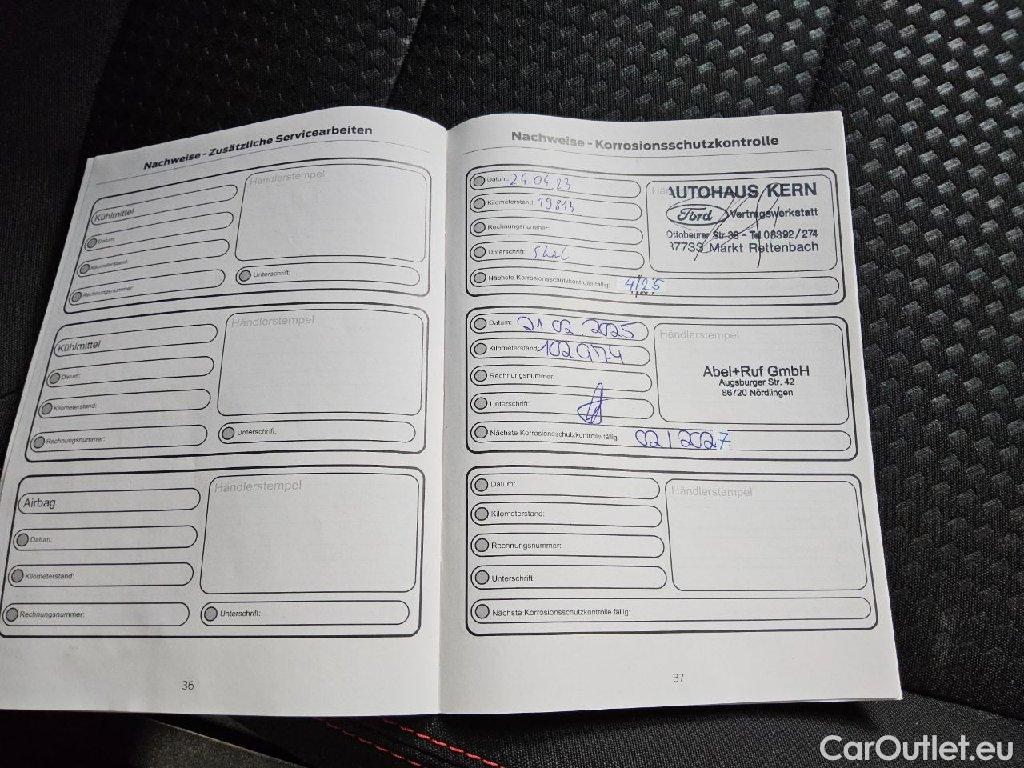 Nachweise - Zusätzliche Servicearbeiten
Händlerstempel
Kühlmittel
Datum:
Kilometerstand:
Rechnungsnummer:
Unterschrift:
Händlerstempel
Kühlmittel
Datum:
Kilometerstand:
Rechnungsnummer:
Unterschrift:
Händlerstempel
Airbag
Datum:
Kilometerstand:
Rechnungsnummer:
Unterschrift:
36
Nachweise - Korrosionsschutzkontrolle
Datum: 24.04.23
Kilometerstand:
Rechnungsnummer:
Unterschrift:
AUTOHAUS KERN
Ford Vertragswerkstatt
Ottobeurer Str. 38 - Tel. 08392/274
87733 Markt Rettenbach
Nächste Korrosionsschutzkontrolle fällig: 4/25
Datum: 21 02 2025
Kilometerstand: 102974
Rechnungsnummer:
Unterschrift:
Händlerstempel
Abel+Ruf GmbH
Augsburger Str. 42
86720 Nördlingen
Nächste Korrosionsschutzkontrolle fällig: 02/2027
Datum:
Kilometerstand:
Rechnungsnummer:
Unterschrift:
Händlerstempel
Nächste Korrosionsschutzkontrolle fällig:
37
CarOutlet.eu